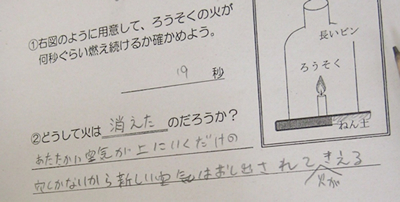 ①右図のように用意して、ろうそくの火が
何秒ぐらい燃え続けるか確かめよう。
19 秒
長いビン
ろうそく
ねん土
②どうして火は 消えた のだろうか?
あたたかい空気が上にいくだけの
穴しかないから新しい空気はおし出されて火がきえる